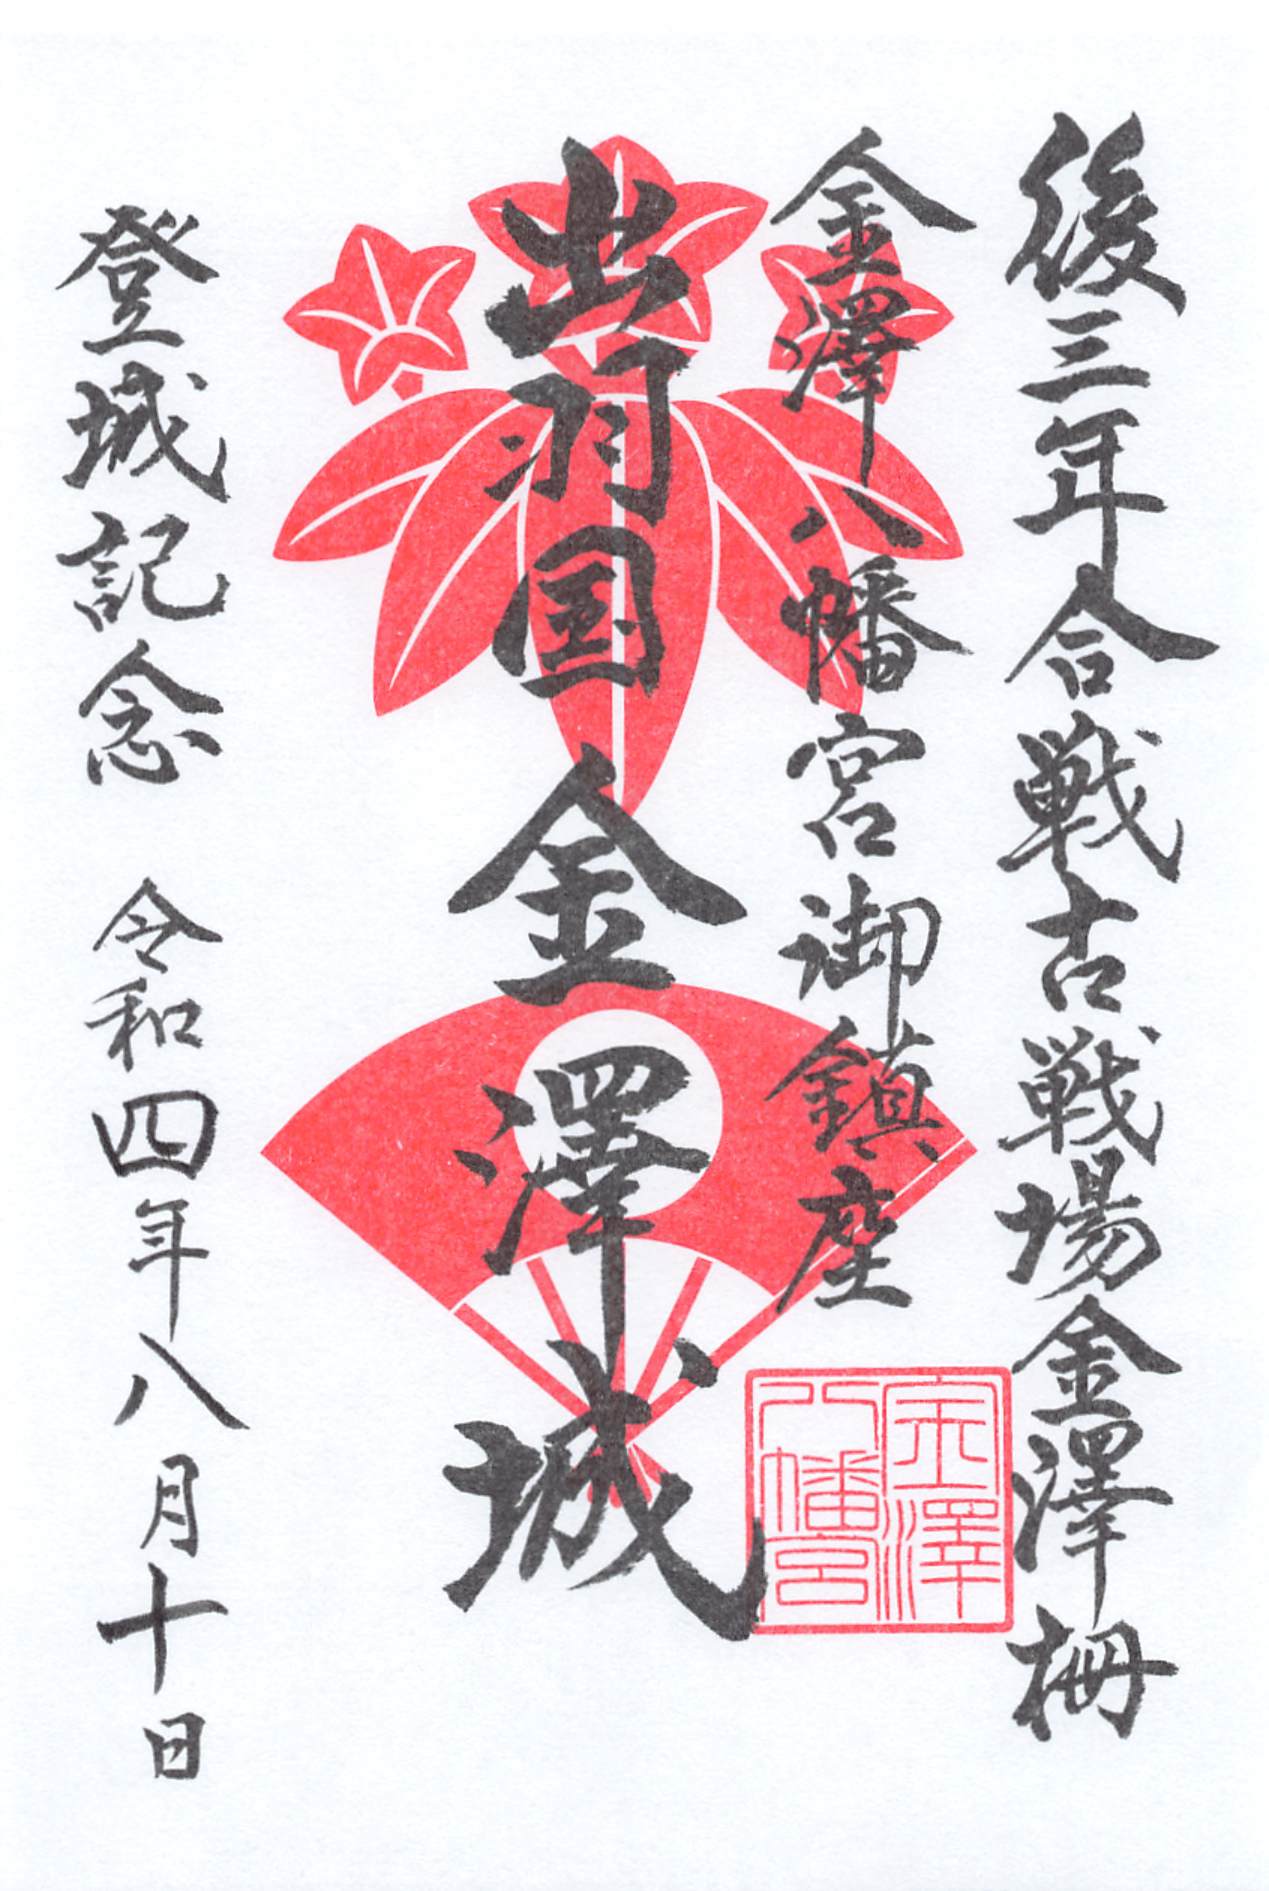 後三年合戦古戦場金澤柵
金澤八幡宮御鎮座
出羽国金澤城
登城記念 令和四年八月十日
金澤
八幡宮